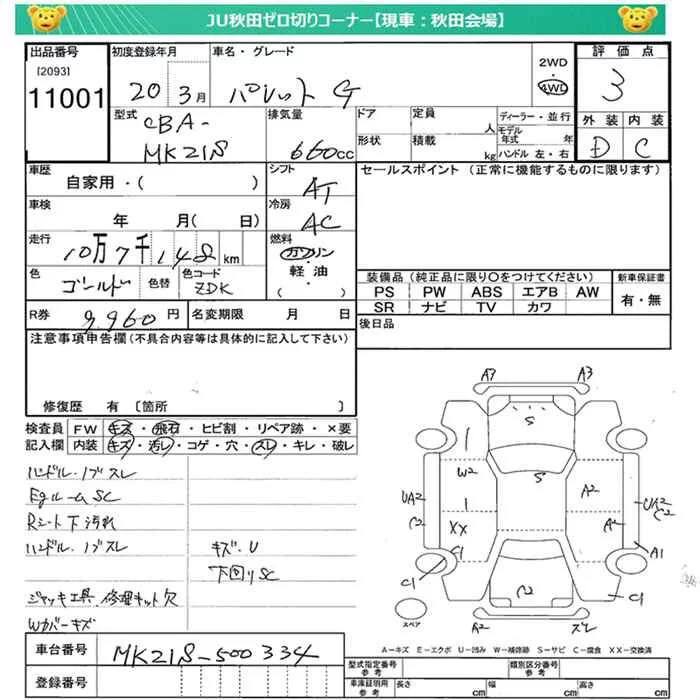 JU秋田ゼロ切りコーナー【現車：秋田会場】
出品番号 初度登録年月 車名・グレード 2WD 評価点
[2093]
11001 20 3月 パレット G 4WD 3
型式 CBA- 排気量 ドア 定員 人 ディーラー・並行 外装 内装
MK21S 660cc 形状 積載 kg モデル年式 年 ハンドル 左・右 D C
車歴 シフト セールスポイント（正常に機能するものに限ります）
自家用・( ) AT
車検 冷房
年 月( 日) AC
走行 燃料
10万7千148km ガソリン・軽油・( )
色 ゴールド 色替 色コード ZDK
装備品（純正品に限り○をつけてください） 新車保証書
PS PW ABS エアB AW 有・無
SR ナビ TV カワ
R券 9,960円 名変期限 月 日
後日品
注意事項申告欄（不具合内容等は具体的に記入して下さい）
修復歴 有 〔箇所 〕
検査員 FW キズ・飛石・ヒビ割・リペア跡・×要
記入欄 内装 キズ・汚レ・コゲ・穴・スレ・キレ・破レ
ハンドル・ノブスレ
EgルームSC
Rシート下汚れ
ハンドル・ノブスレ キズ・U
下回りSC
ジャッキ工具・修理キット欠
Wカバーキズ
A3 A3
S
W2 S
UA2 A2 UA2
C2 XX A2 C2
C1 A1
C1 C2 C1
スペア A2 スレ
A−キズ E−エクボ U−凹み W−補修跡 S−サビ C−腐食 XX−交換済
車台番号 MK21S-500334
登録番号
型式指定番号 参考 類別区分番号 参考
車庫証明用 参考 長さ cm 幅 cm 高さ cm